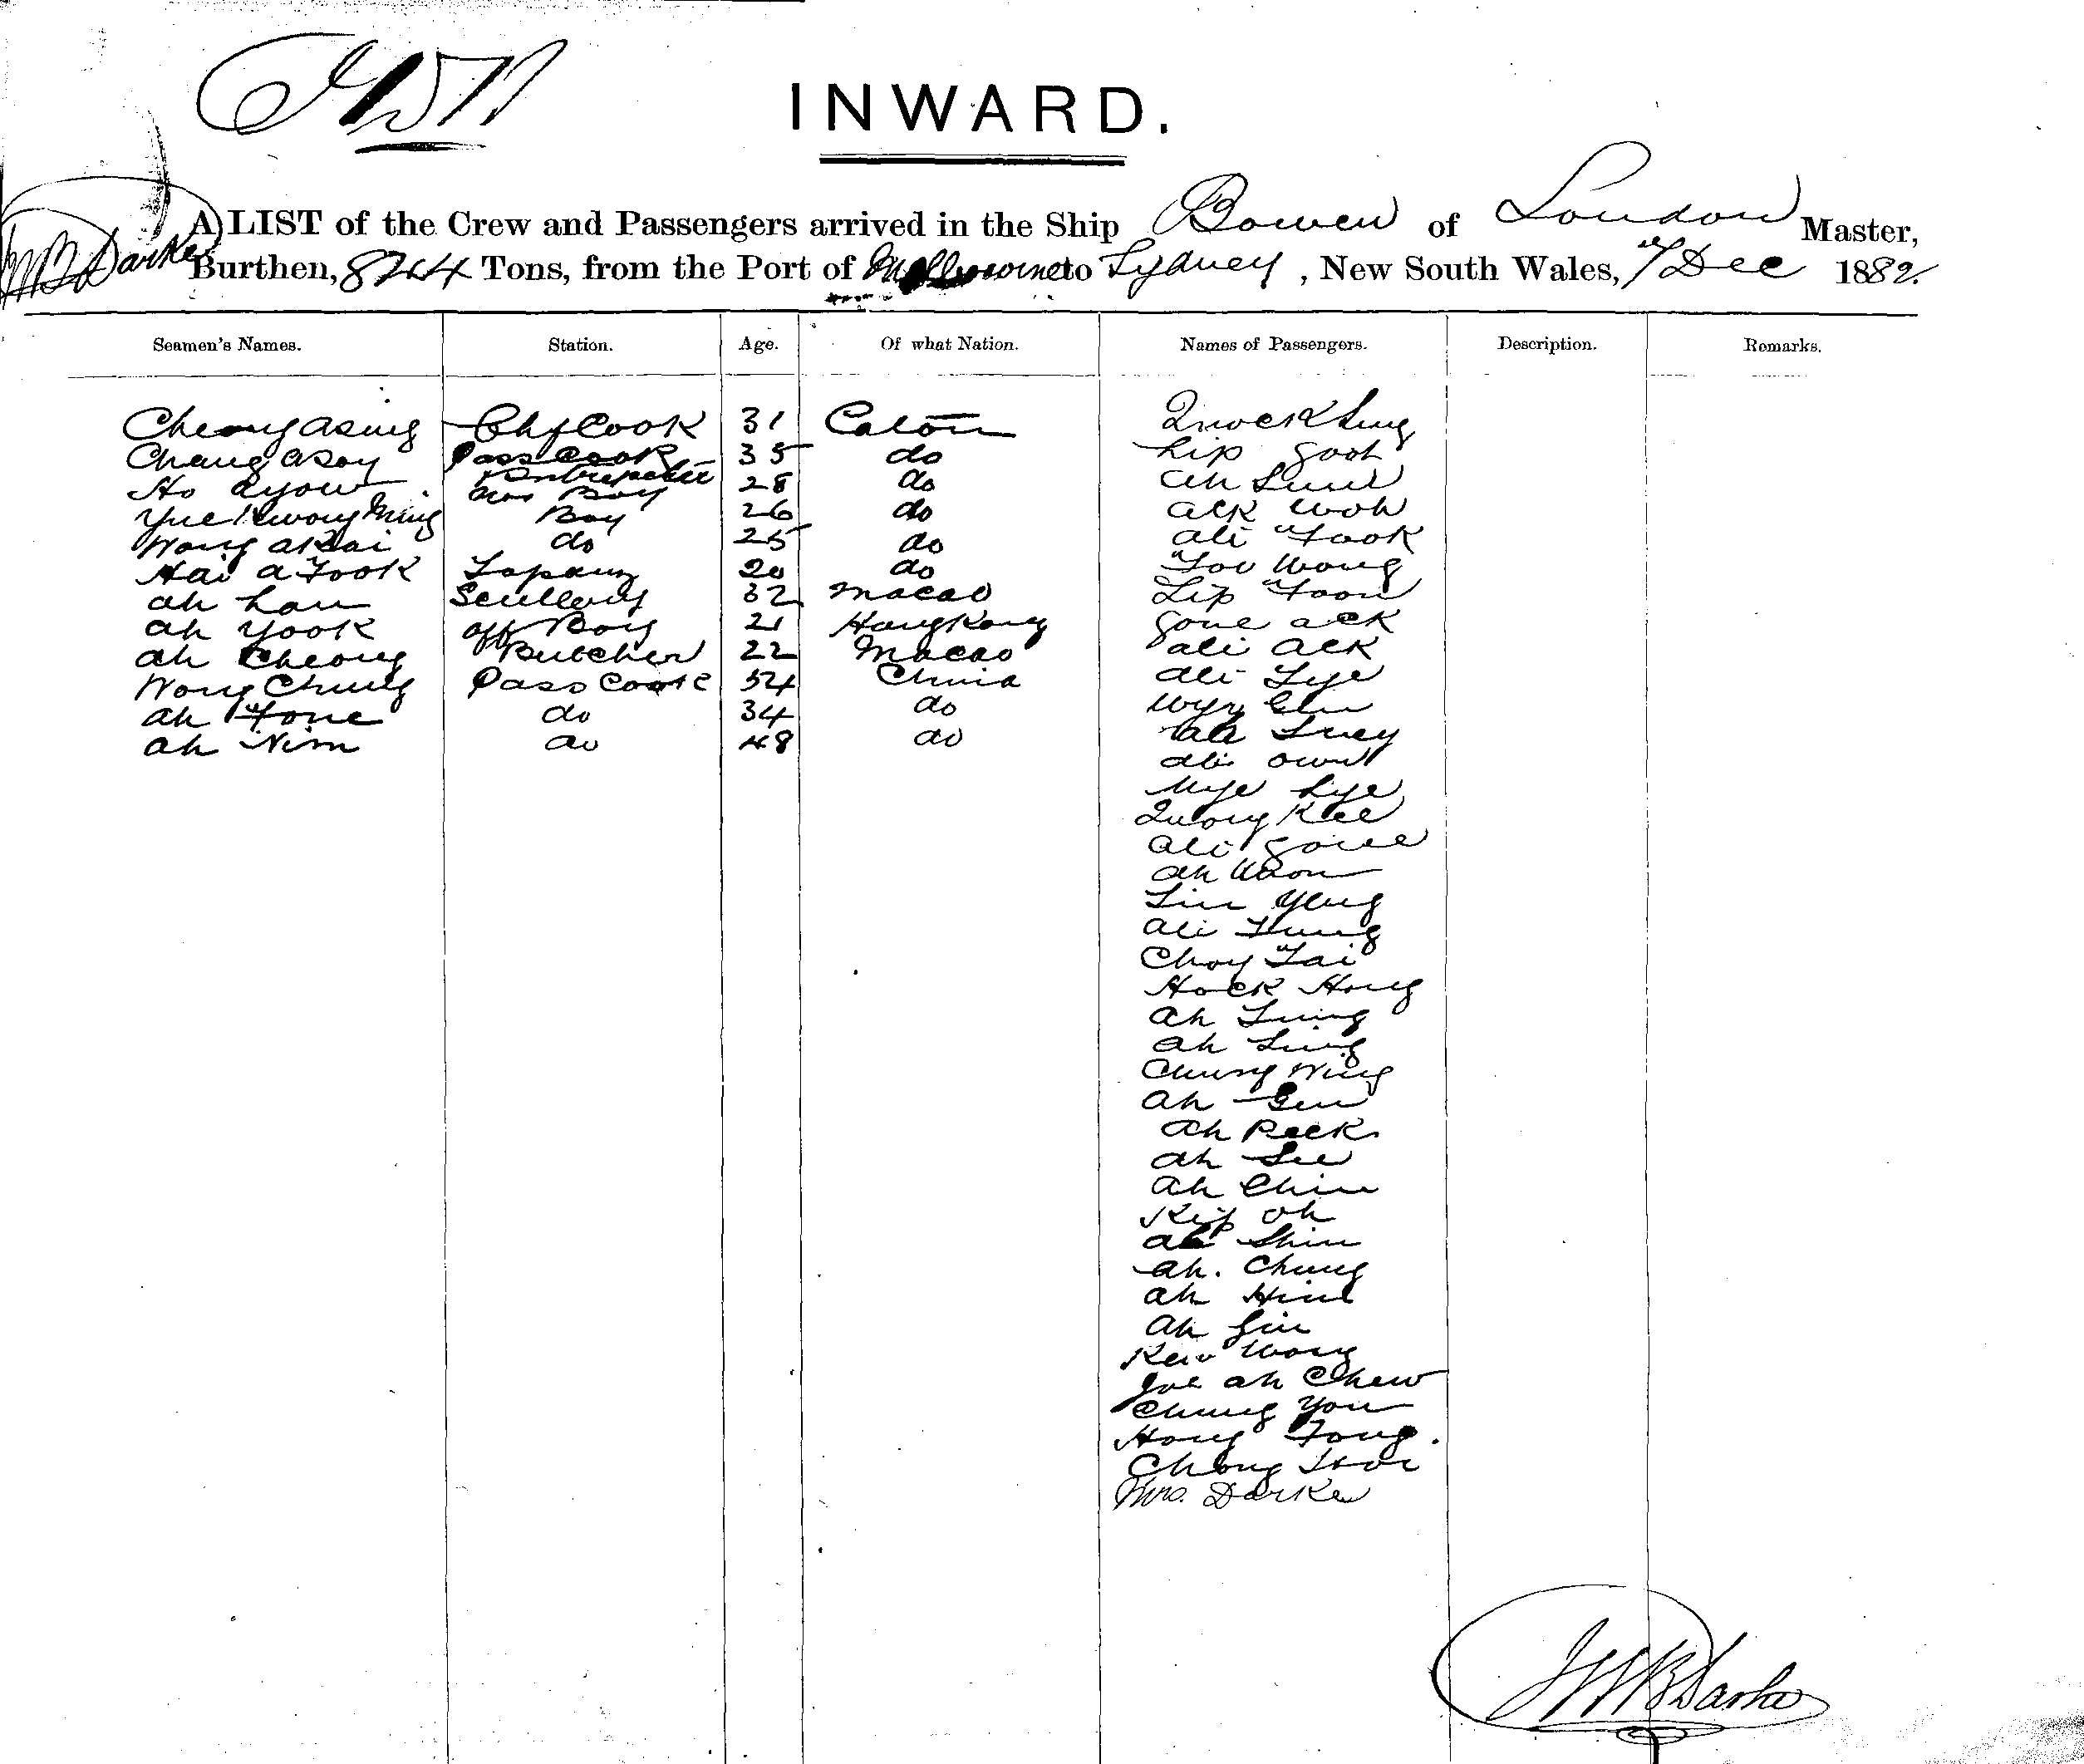 INWARD.
A LIST of the Crew and Passengers arrived in the Ship Bowen of London Master,
Darke Burthen, 824 Tons, from the Port of Melbourne to Sydney, New South Wales, 7 Dec 1882.
Seamen's Names. Station. Age. Of what Nation. Names of Passengers. Description. Remarks.
Cheong asing Chf Cook 31 Caton
Chang asoy Pass Cook 35 do Lip Goot
Ho ayow Boy 28 do
Yue Kwong Ming Boy 26 do ack woh
Wong akai do 25 do ah Fook
Hai a Fook 20 do Foo Wong
ah Lau 32 Macao Lip Foon
ah Yook off Boy 21 Hong Kong Gone ack
ah Cheong Butcher 22 Macao ah ack
Wong Chung Pass Cook 54 China ah Lye
ah Fone do 34 do
ah Nim do 48 do ah Luey
ah own
Lye
Quong Kee
ah Gone
ah Woon
ah Fung
Choy Tai
Hock Hong
ah
ah Ling
Chung Wing
ah Gun
ah Peek
ah See
ah Chin
Kip oh
ah Shin
ah. Chung
ah Hing
ah Gin
Kew Wong
Joe ah Chew
Chung You
Hong Fong.
Chong
Mrs. Darke
Darke